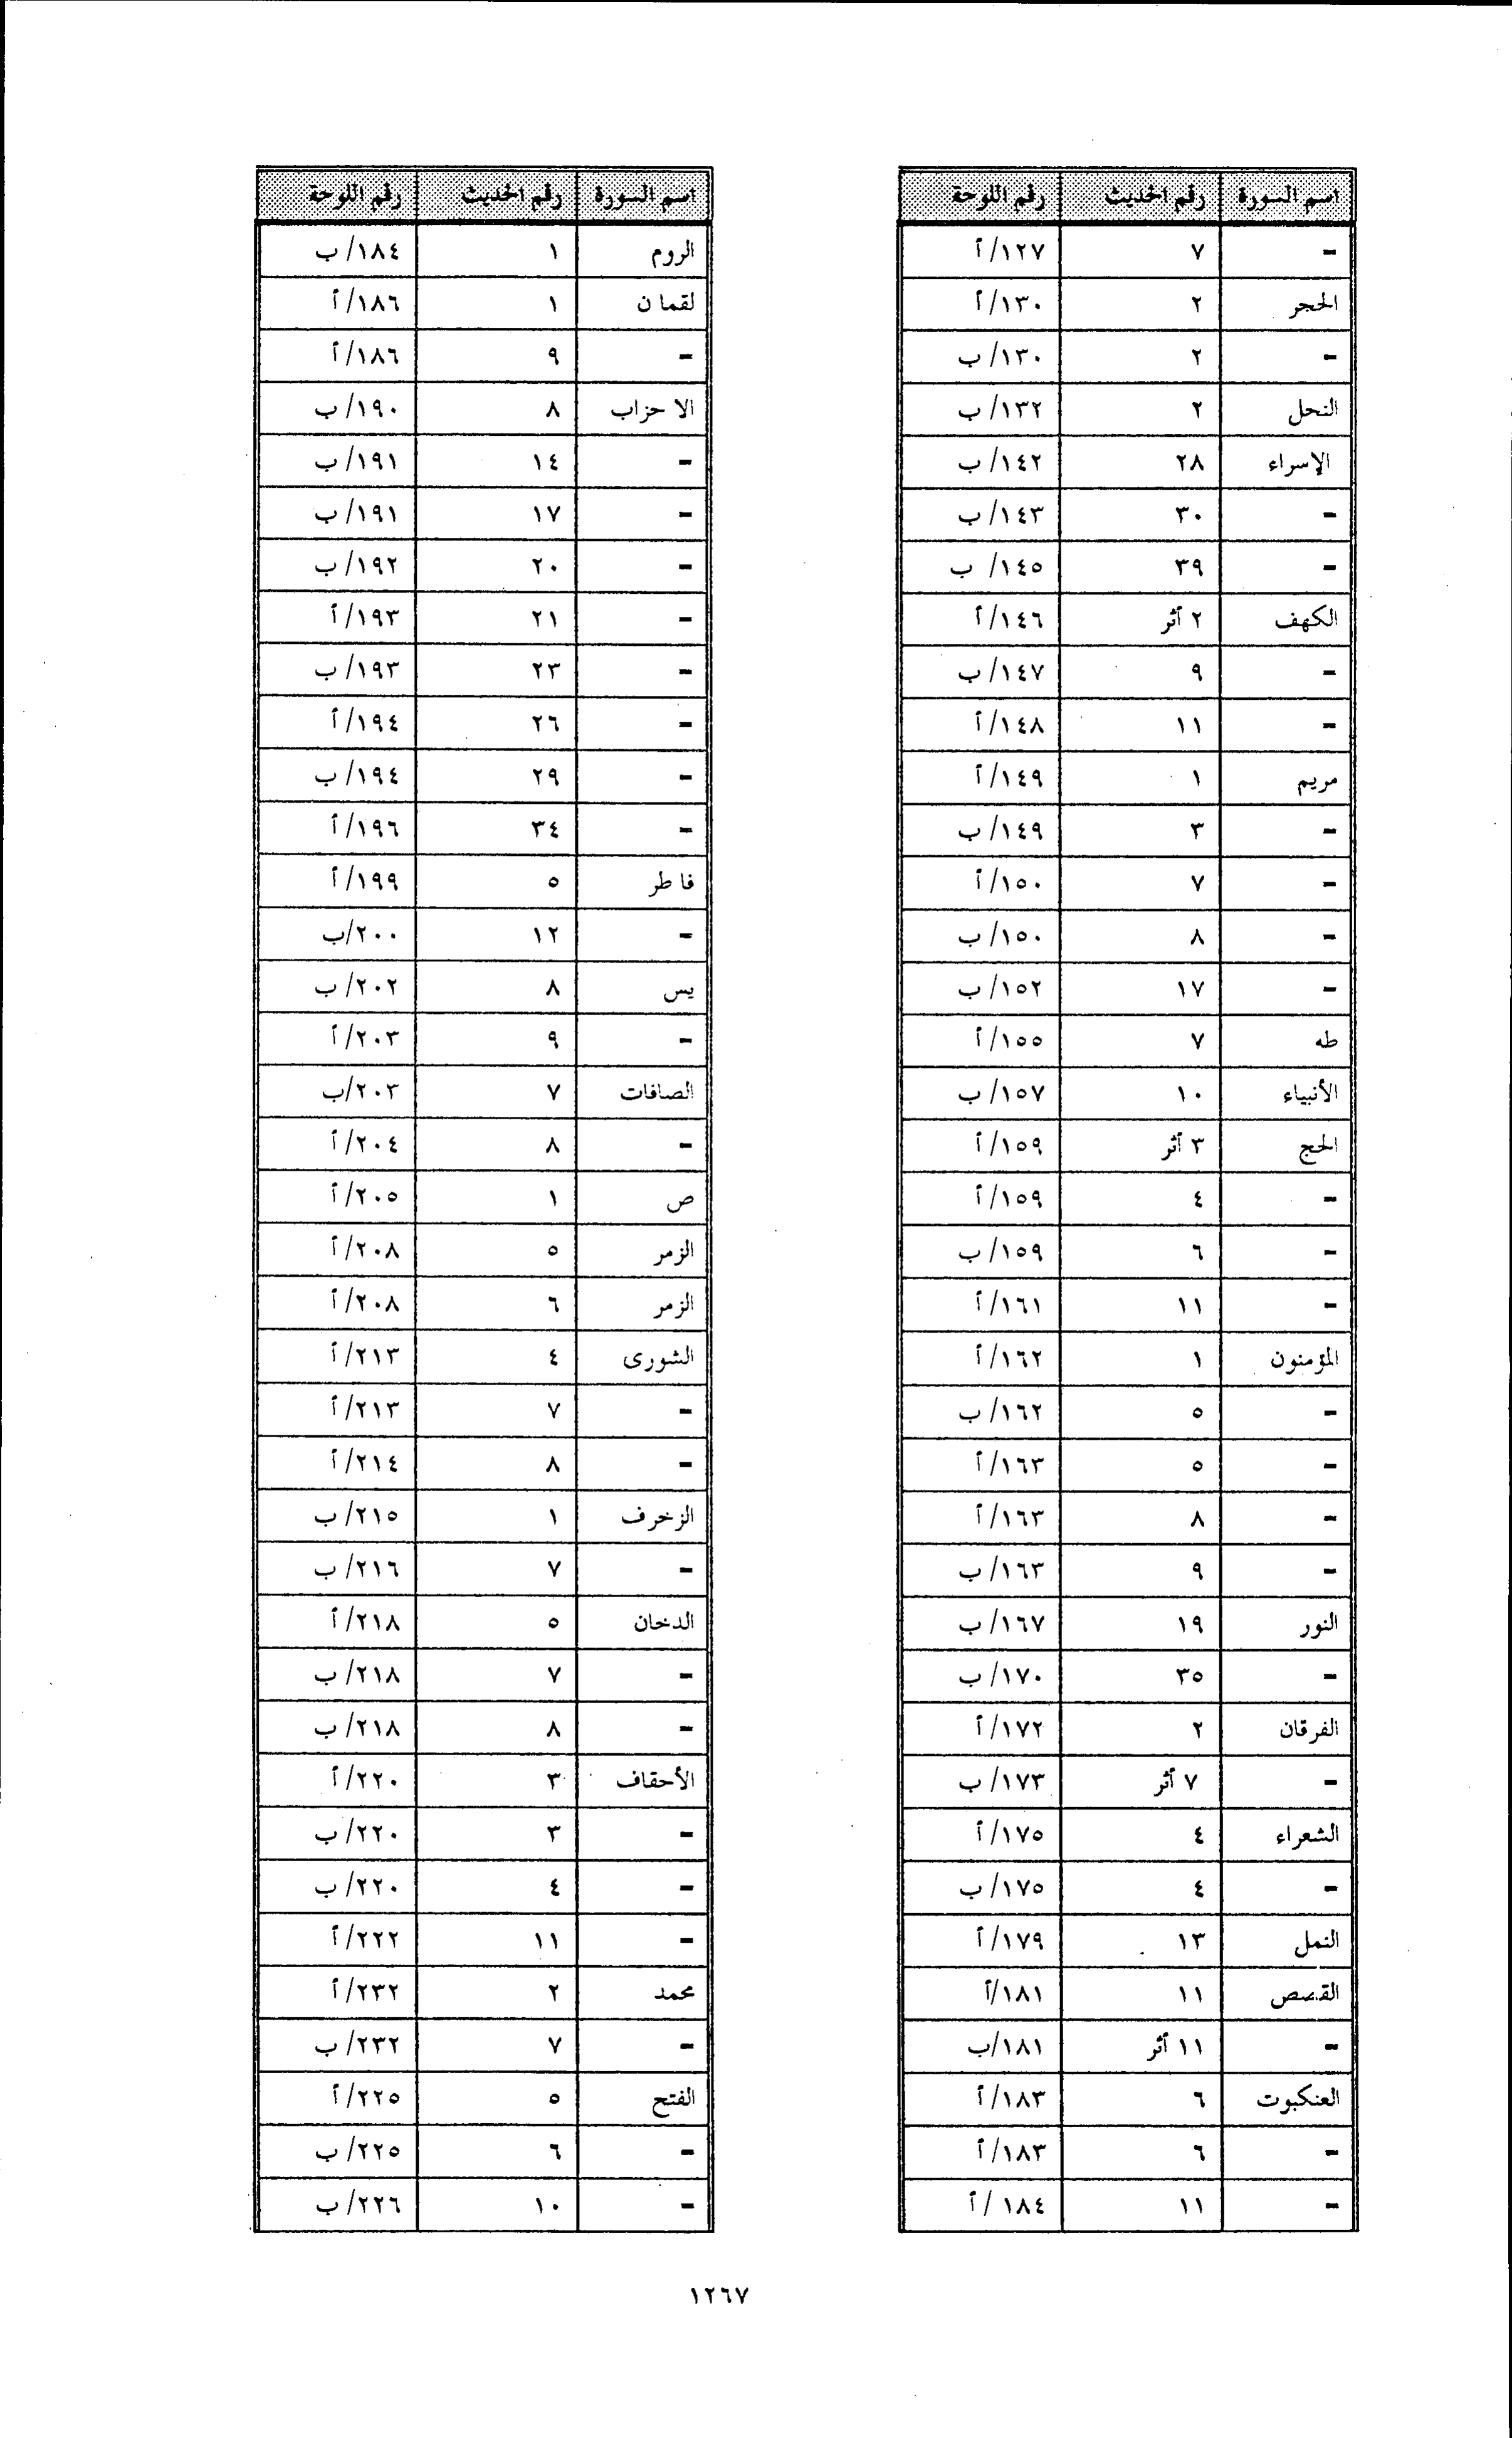 اسم السورة رقم الحديث رقم اللوحة
- ٧ ١٢٧/ أ
الحجر ٢ ١٣٠/ أ
- ٢ ١٣٠/ ب
النحل ٢ ١٣٢/ ب
الإسراء ٢٨ ١٤٢/ ب
- ٣٠ ١٤٣/ ب
- ٣٩ ١٤٥/ ب
الكهف ٢ أثر ١٤٦/ أ
- ٩ ١٤٧/ ب
- ١١ ١٤٨/ أ
مريم ١ ١٤٩/ أ
- ٣ ١٤٩/ ب
- ٧ ١٥٠/ أ
- ٨ ١٥٠/ ب
- ١٧ ١٥٢/ ب
طه ٧ ١٥٥/ أ
الأنبياء ١٠ ١٥٧/ ب
الحج ٣ أثر ١٥٩/ أ
- ٤ ١٥٩/ أ
- ٦ ١٥٩/ ب
- ١١ ١٦١/ أ
المؤمنون ١ ١٦٢/ أ
- ٥ ١٦٢/ ب
- ٥ ١٦٣/ أ
- ٨ ١٦٣/ أ
- ٩ ١٦٣/ ب
النور ١٩ ١٦٧/ ب
- ٣٥ ١٧٠/ ب
الفرقان ٢ ١٧٢/ أ
- ٧ أثر ١٧٣/ ب
الشعراء ٤ ١٧٥/ أ
- ٤ ١٧٥/ ب
النمل ١٣ ١٧٩/ أ
القصص ١١ ١٨١/أ
- ١١ أثر ١٨١/ب
العنكبوت ٦ ١٨٣/ أ
- ٦ ١٨٣/ أ
- ١١ ١٨٤ / أ
اسم السورة رقم الحديث رقم اللوحة
الروم ١ ١٨٤/ ب
لقمان ١ ١٨٦/ أ
- ٩ ١٨٦/ أ
الاحزاب ٨ ١٩٠/ ب
- ١٤ ١٩١/ ب
- ١٧ ١٩١/ ب
- ٢٠ ١٩٢/ ب
- ٢١ ١٩٣/ أ
- ٢٣ ١٩٣/ ب
- ٢٦ ١٩٤/ أ
- ٢٩ ١٩٤/ ب
- ٣٤ ١٩٦/ أ
فاطر ٥ ١٩٩/ أ
- ١٢ ٢٠٠/ب
يس ٨ ٢٠٢/ ب
- ٩ ٢٠٣/ أ
الصافات ٧ ٢٠٣/ب
- ٨ ٢٠٤/ أ
ص ١ ٢٠٥/ أ
الزمر ٥ ٢٠٨/ أ
الزمر ٦ ٢٠٨/ أ
الشورى ٤ ٢١٣/ أ
- ٧ ٢١٣/ أ
- ٨ ٢١٤/ أ
الزخرف ١ ٢١٥/ ب
- ٧ ٢١٦/ ب
الدخان ٥ ٢١٨/ أ
- ٧ ٢١٨/ ب
- ٨ ٢١٨/ ب
الأحقاف ٣ ٢٢٠/ أ
- ٣ ٢٢٠/ ب
- ٤ ٢٢٠/ ب
- ١١ ٢٢٢/ أ
محمد ٢ ٢٣٢/ أ
- ٧ ٢٣٢/ ب
الفتح ٥ ٢٢٥/ أ
- ٦ ٢٢٥/ ب
- ١٠ ٢٢٦/ ب
١٢٦٧